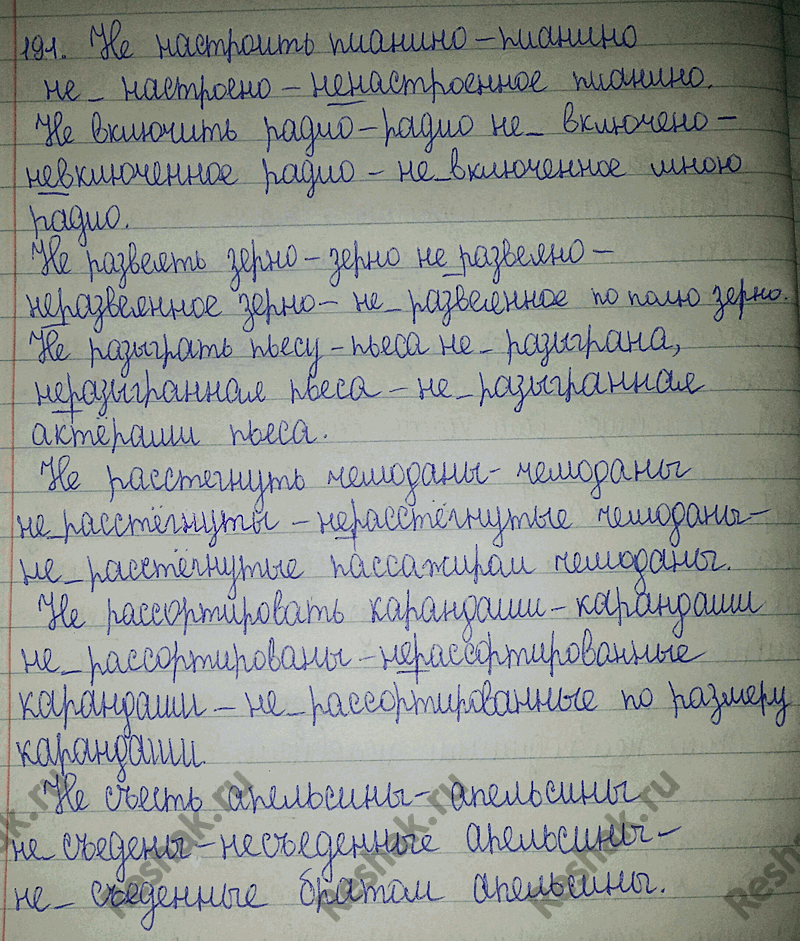 191. Не настроить пианино – пианино
не_ настроено – ненастроенное пианино.
Не включить радио – радио не_ включено –
невключенное радио – не_включенное мною
радио.
Не развеять зерно – зерно не_развеяно –
неразвеянное зерно – не_ развеянное по полю зерно.
Не разыграть пьесу – пьеса не_ разыграна,
неразыгранная пьеса – не_ разыгранная
актёрами пьеса.
Не расстегнуть чемоданы – чемоданы
не_расстёгнуты – нерасстёгнутые чемоданы –
не_ расстёгнутые пассажиром чемоданы.
Не рассортировать карандаши – карандаши
не_ рассортированы – нерассортированные
карандаши – не_ рассортированные по размеру
карандаши.
Не съесть апельсины – апельсины
не_съедены – несъеденные апельсины –
не_ съеденные братом апельсины.
Reshak.ru Reshak.ru Reshak.ru Reshak.ru